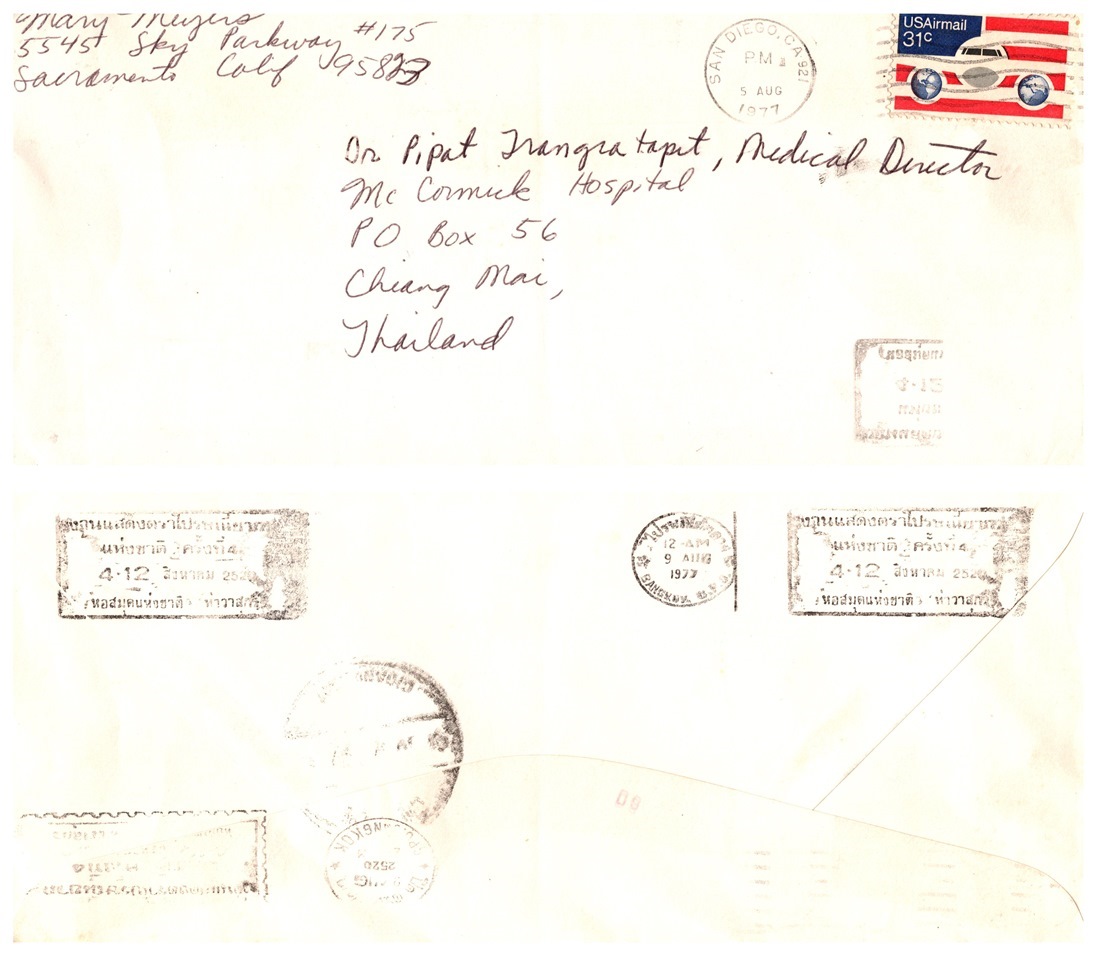 Mary Meyers
5545 Sky Parkway #175
Sacramento Calif 95823
SAN DIEGO, CA 921
PM
5 AUG
1977
USAirmail
31c
Dr Pipat Trangratapit, Medical Director
McCormick Hospital
PO Box 56
Chiang Mai,
Thailand
4·12
งานแสดงตราไปรษณียากร
แห่งชาติ ครั้งที่ 4
4-12 สิงหาคม 2520
หอสมุดแห่งชาติ ท่าวาสุกรี
12-AM
9 AUG
1977
BANGKOK G.P.O.
งานแสดงตราไปรษณียากร
แห่งชาติ ครั้งที่ 4
4-12 สิงหาคม 2520
หอสมุดแห่งชาติ ท่าวาสุกรี
BANGKOK
2520
AUG